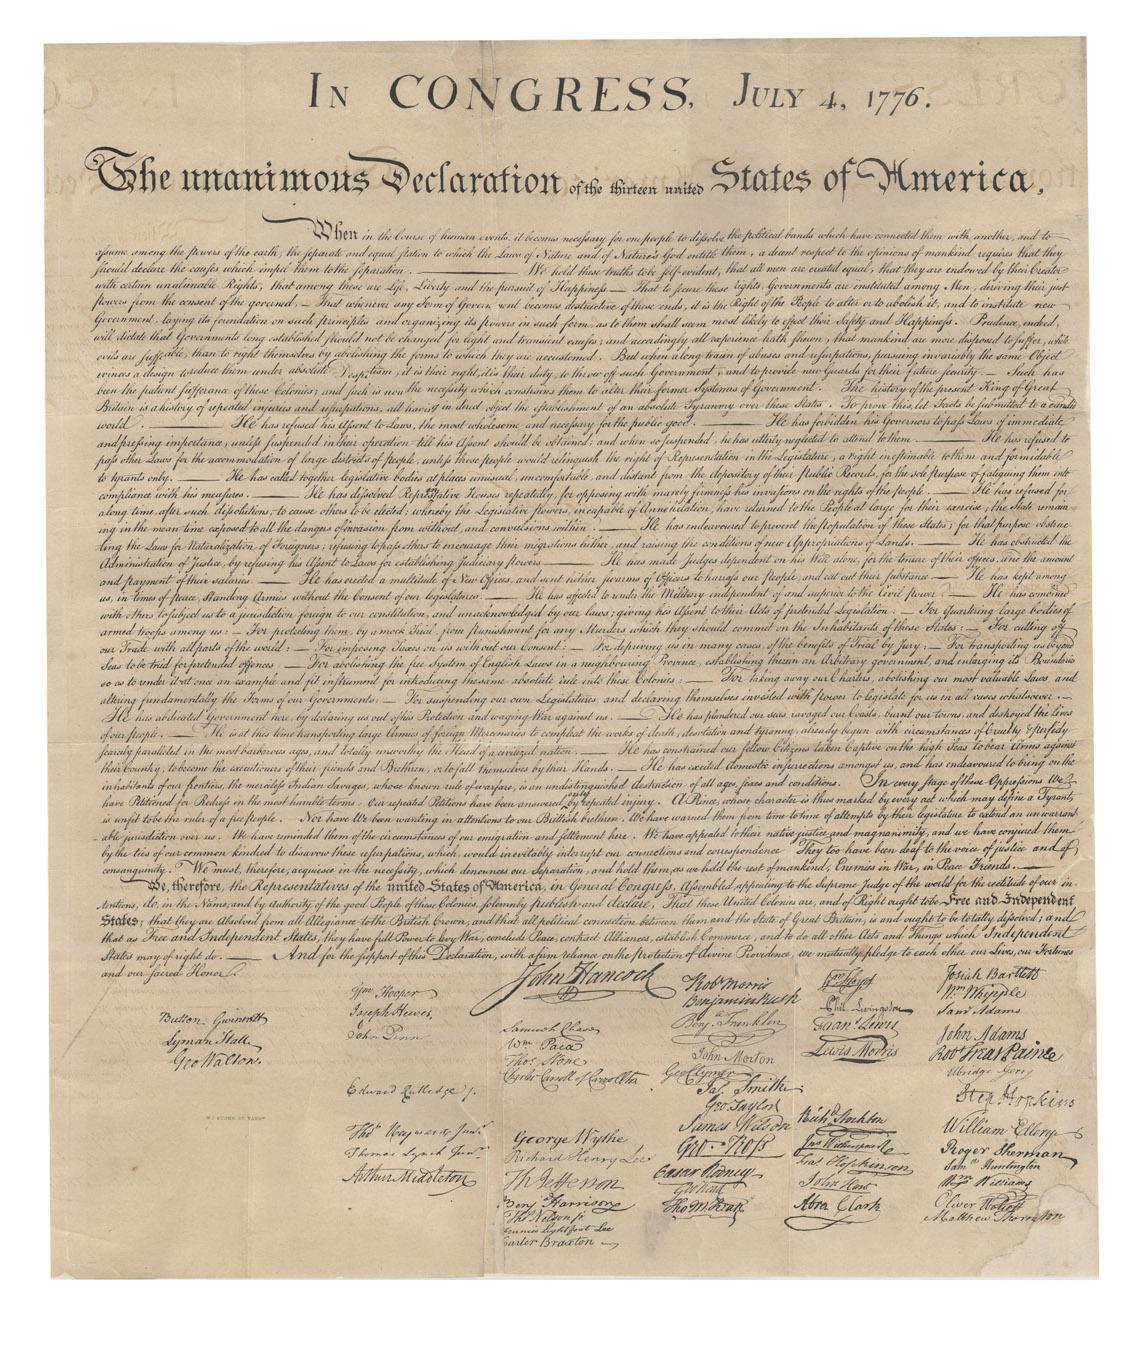 In CONGRESS, July 4, 1776.
The unanimous Declaration of the thirteen united States of America,
When in the Course of human events, it becomes necessary for one people to dissolve the political bands which have connected them with another, and to
assume among the powers of the earth, the separate and equal station to which the Laws of Nature and of Nature's God entitle them, a decent respect to the opinions of mankind requires that they
should declare the causes which impel them to the separation. ——— We hold these truths to be self-evident, that all men are created equal, that they are endowed by their Creator
with certain unalienable Rights, that among these are Life, Liberty and the pursuit of Happiness.— That to secure these rights, Governments are instituted among Men, deriving their just
powers from the consent of the governed, — That whenever any Form of Government becomes destructive of these ends, it is the Right of the People to alter or to abolish it, and to institute new
Government, laying its foundation on such principles and organizing its powers in such form, as to them shall seem most likely to effect their Safety and Happiness. Prudence, indeed,
will dictate that Governments long established should not be changed for light and transient causes; and accordingly all experience hath shewn, that mankind are more disposed to suffer, while
evils are sufferable, than to right themselves by abolishing the forms to which they are accustomed. But when a long train of abuses and usurpations, pursuing invariably the same Object
evinces a design to reduce them under absolute Despotism, it is their right, it is their duty, to throw off such Government, and to provide new Guards for their future security. — Such has
been the patient sufferance of these Colonies; and such is now the necessity which constrains them to alter their former Systems of Government. The history of the present King of Great
Britain is a history of repeated injuries and usurpations, all having in direct object the establishment of an absolute Tyranny over these States. To prove this, let Facts be submitted to a candid
world. ——— He has refused his Assent to Laws, the most wholesome and necessary for the public good. ——— He has forbidden his Governors to pass Laws of immediate
and pressing importance, unless suspended in their operation till his Assent should be obtained; and when so suspended, he has utterly neglected to attend to them. ——— He has refused to
pass other Laws for the accommodation of large districts of people, unless those people would relinquish the right of Representation in the Legislature, a right inestimable to them and formidable
to tyrants only. — He has called together legislative bodies at places unusual, uncomfortable, and distant from the depository of their Public Records, for the sole purpose of fatiguing them into
compliance with his measures. — He has dissolved Representative Houses repeatedly, for opposing with manly firmness his invasions on the rights of the people. — He has refused for
a long time, after such dissolutions, to cause others to be elected; whereby the Legislative powers, incapable of Annihilation, have returned to the People at large for their exercise; the State remain-
ing in the mean time exposed to all the dangers of invasion from without, and convulsions within. — He has endeavoured to prevent the population of these States; for that purpose obstruc-
ting the Laws for Naturalization of Foreigners; refusing to pass others to encourage their migrations hither, and raising the conditions of new Appropriations of Lands. — He has obstructed the
Administration of Justice, by refusing his Assent to Laws for establishing Judiciary powers — He has made Judges dependent on his Will alone, for the tenure of their offices, and the amount
and payment of their salaries. — He has erected a multitude of New Offices, and sent hither swarms of Officers to harrass our people, and eat out their substance — He has kept among
us, in times of peace, Standing Armies without the Consent of our legislatures. — He has affected to render the Military independent of and superior to the Civil power. — He has combined
with others to subject us to a jurisdiction foreign to our constitution, and unacknowledged by our laws; giving his Assent to their Acts of pretended Legislation: — For Quartering large bodies of
armed troops among us: — For protecting them, by a mock Trial, from punishment for any Murders which they should commit on the Inhabitants of these States: — For cutting off
our Trade with all parts of the world: — For imposing Taxes on us without our Consent: — For depriving us in many cases, of the benefits of Trial by Jury: — For transporting us beyond
Seas to be tried for pretended offences — For abolishing the free System of English Laws in a neighbouring Province, establishing therein an Arbitrary government, and enlarging its Boundaries
so as to render it at once an example and fit instrument for introducing the same absolute rule into these Colonies: — For taking away our Charters, abolishing our most valuable Laws, and
altering fundamentally the Forms of our Governments: — For suspending our own Legislatures, and declaring themselves invested with power to legislate for us in all cases whatsoever. —
He has abdicated Government here, by declaring us out of his Protection and waging War against us. — He has plundered our seas, ravaged our Coasts, burnt our towns, and destroyed the lives
of our people. — He is at this time transporting large Armies of foreign Mercenaries to compleat the works of death, desolation and tyranny, already begun with circumstances of Cruelty & perfidy
scarcely paralleled in the most barbarous ages, and totally unworthy the Head of a civilized nation. — He has constrained our fellow Citizens taken Captive on the high Seas to bear Arms against
their Country, to become the executioners of their friends and Brethren, or to fall themselves by their Hands. — He has excited domestic insurrections amongst us, and has endeavoured to bring on the
inhabitants of our frontiers, the merciless Indian Savages, whose known rule of warfare, is an undistinguished destruction of all ages, sexes and conditions. In every stage of these Oppressions We
have Petitioned for Redress in the most humble terms: Our repeated Petitions have been answered only by repeated injury. A Prince, whose character is thus marked by every act which may define a Tyrant,
is unfit to be the ruler of a free people. Nor have We been wanting in attentions to our Brittish brethren. We have warned them from time to time of attempts by their legislature to extend an unwarrant-
able jurisdiction over us. We have reminded them of the circumstances of our emigration and settlement here. We have appealed to their native justice and magnanimity, and we have conjured them
by the ties of our common kindred to disavow these usurpations, which, would inevitably interrupt our connections and correspondence They too have been deaf to the voice of justice and of
consanguinity. We must, therefore, acquiesce in the necessity, which denounces our Separation, and hold them, as we hold the rest of mankind, Enemies in War, in Peace Friends. ———
We, therefore, the Representatives of the united States of America, in General Congress, Assembled, appealing to the Supreme Judge of the world for the rectitude of our in-
tentions, do, in the Name, and by Authority of the good People of these Colonies, solemnly publish and declare, That these United Colonies are, and of Right ought to be Free and Independent
States; that they are Absolved from all Allegiance to the British Crown, and that all political connection between them and the State of Great Britain, is and ought to be totally dissolved; and
that as Free and Independent States, they have full Power to levy War, conclude Peace, contract Alliances, establish Commerce, and to do all other Acts and Things which Independent
States may of right do. — And for the support of this Declaration, with a firm reliance on the protection of divine Providence, we mutually pledge to each other our Lives, our Fortunes
and our sacred Honor.
Button Gwinnett
Lyman Hall
Geo Walton.
Wm Hooper
Joseph Hewes,
John Penn
Edward Rutledge /.
Thos Heyward Junr.
Thomas Lynch Junr.
Arthur Middleton
John Hancock
Samuel Chase
Wm. Paca
Thos. Stone
Charles Carroll of Carrollton
George Wythe
Richard Henry Lee
Th Jefferson
Benja Harrison
Thos Nelson jr.
Francis Lightfoot Lee
Carter Braxton
Robt Morris
Benjamin Rush
Benja. Franklin
John Morton
Geo Clymer
Jas. Smith
Geo. Taylor
James Wilson
Geo. Ross
Caesar Rodney
Geo Read
Tho M:Kean
Wm Floyd
Phil. Livingston
Frans. Lewis
Lewis Morris
Richd. Stockton
Jno Witherspoon
Fras. Hopkinson
John Hart
Abra Clark
Josiah Bartlett
Wm. Whipple
Saml Adams
John Adams
Robt Treat Paine
Elbridge Gerry
Step Hopkins
William Ellery
Roger Sherman
Saml Huntington
Wm. Williams
Oliver Wolcott
Matthew Thornton